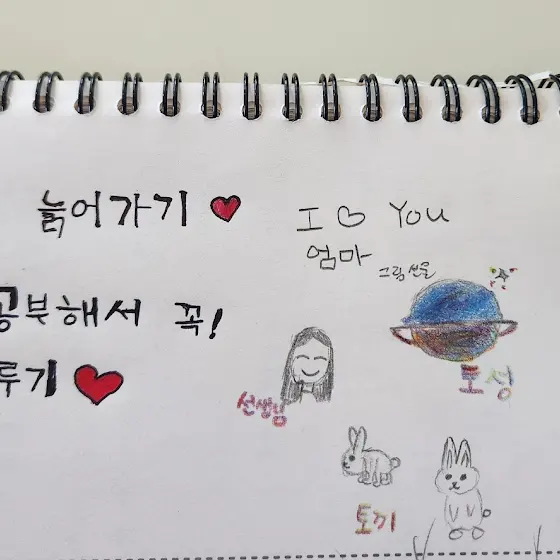 늙어가기
공부해서 꼭!
루기
I ♡ You
엄마
그림선물
토성
선생님
토끼